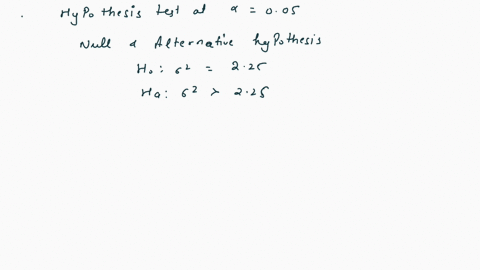 HyPothesis test at α = 0.05
Null & Alternative hyPothesis
H₀: σ² = 2.25
Ha: σ² > 2.25